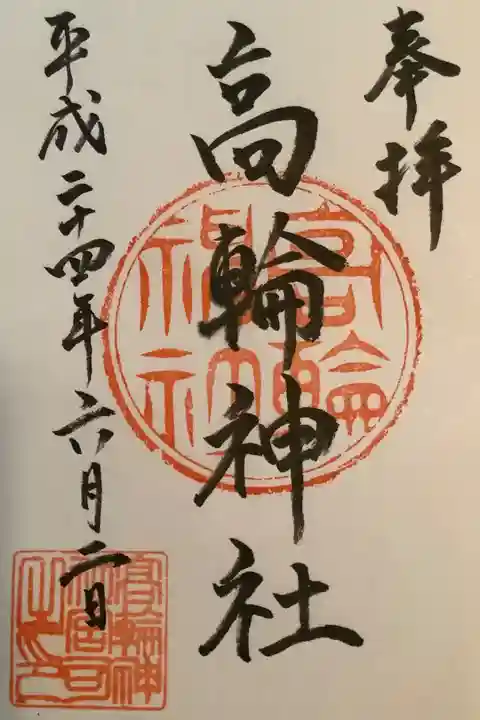 奉拝
高輪神社
平成二十四年六月二日
高輪神社
高輪神社宮司之印